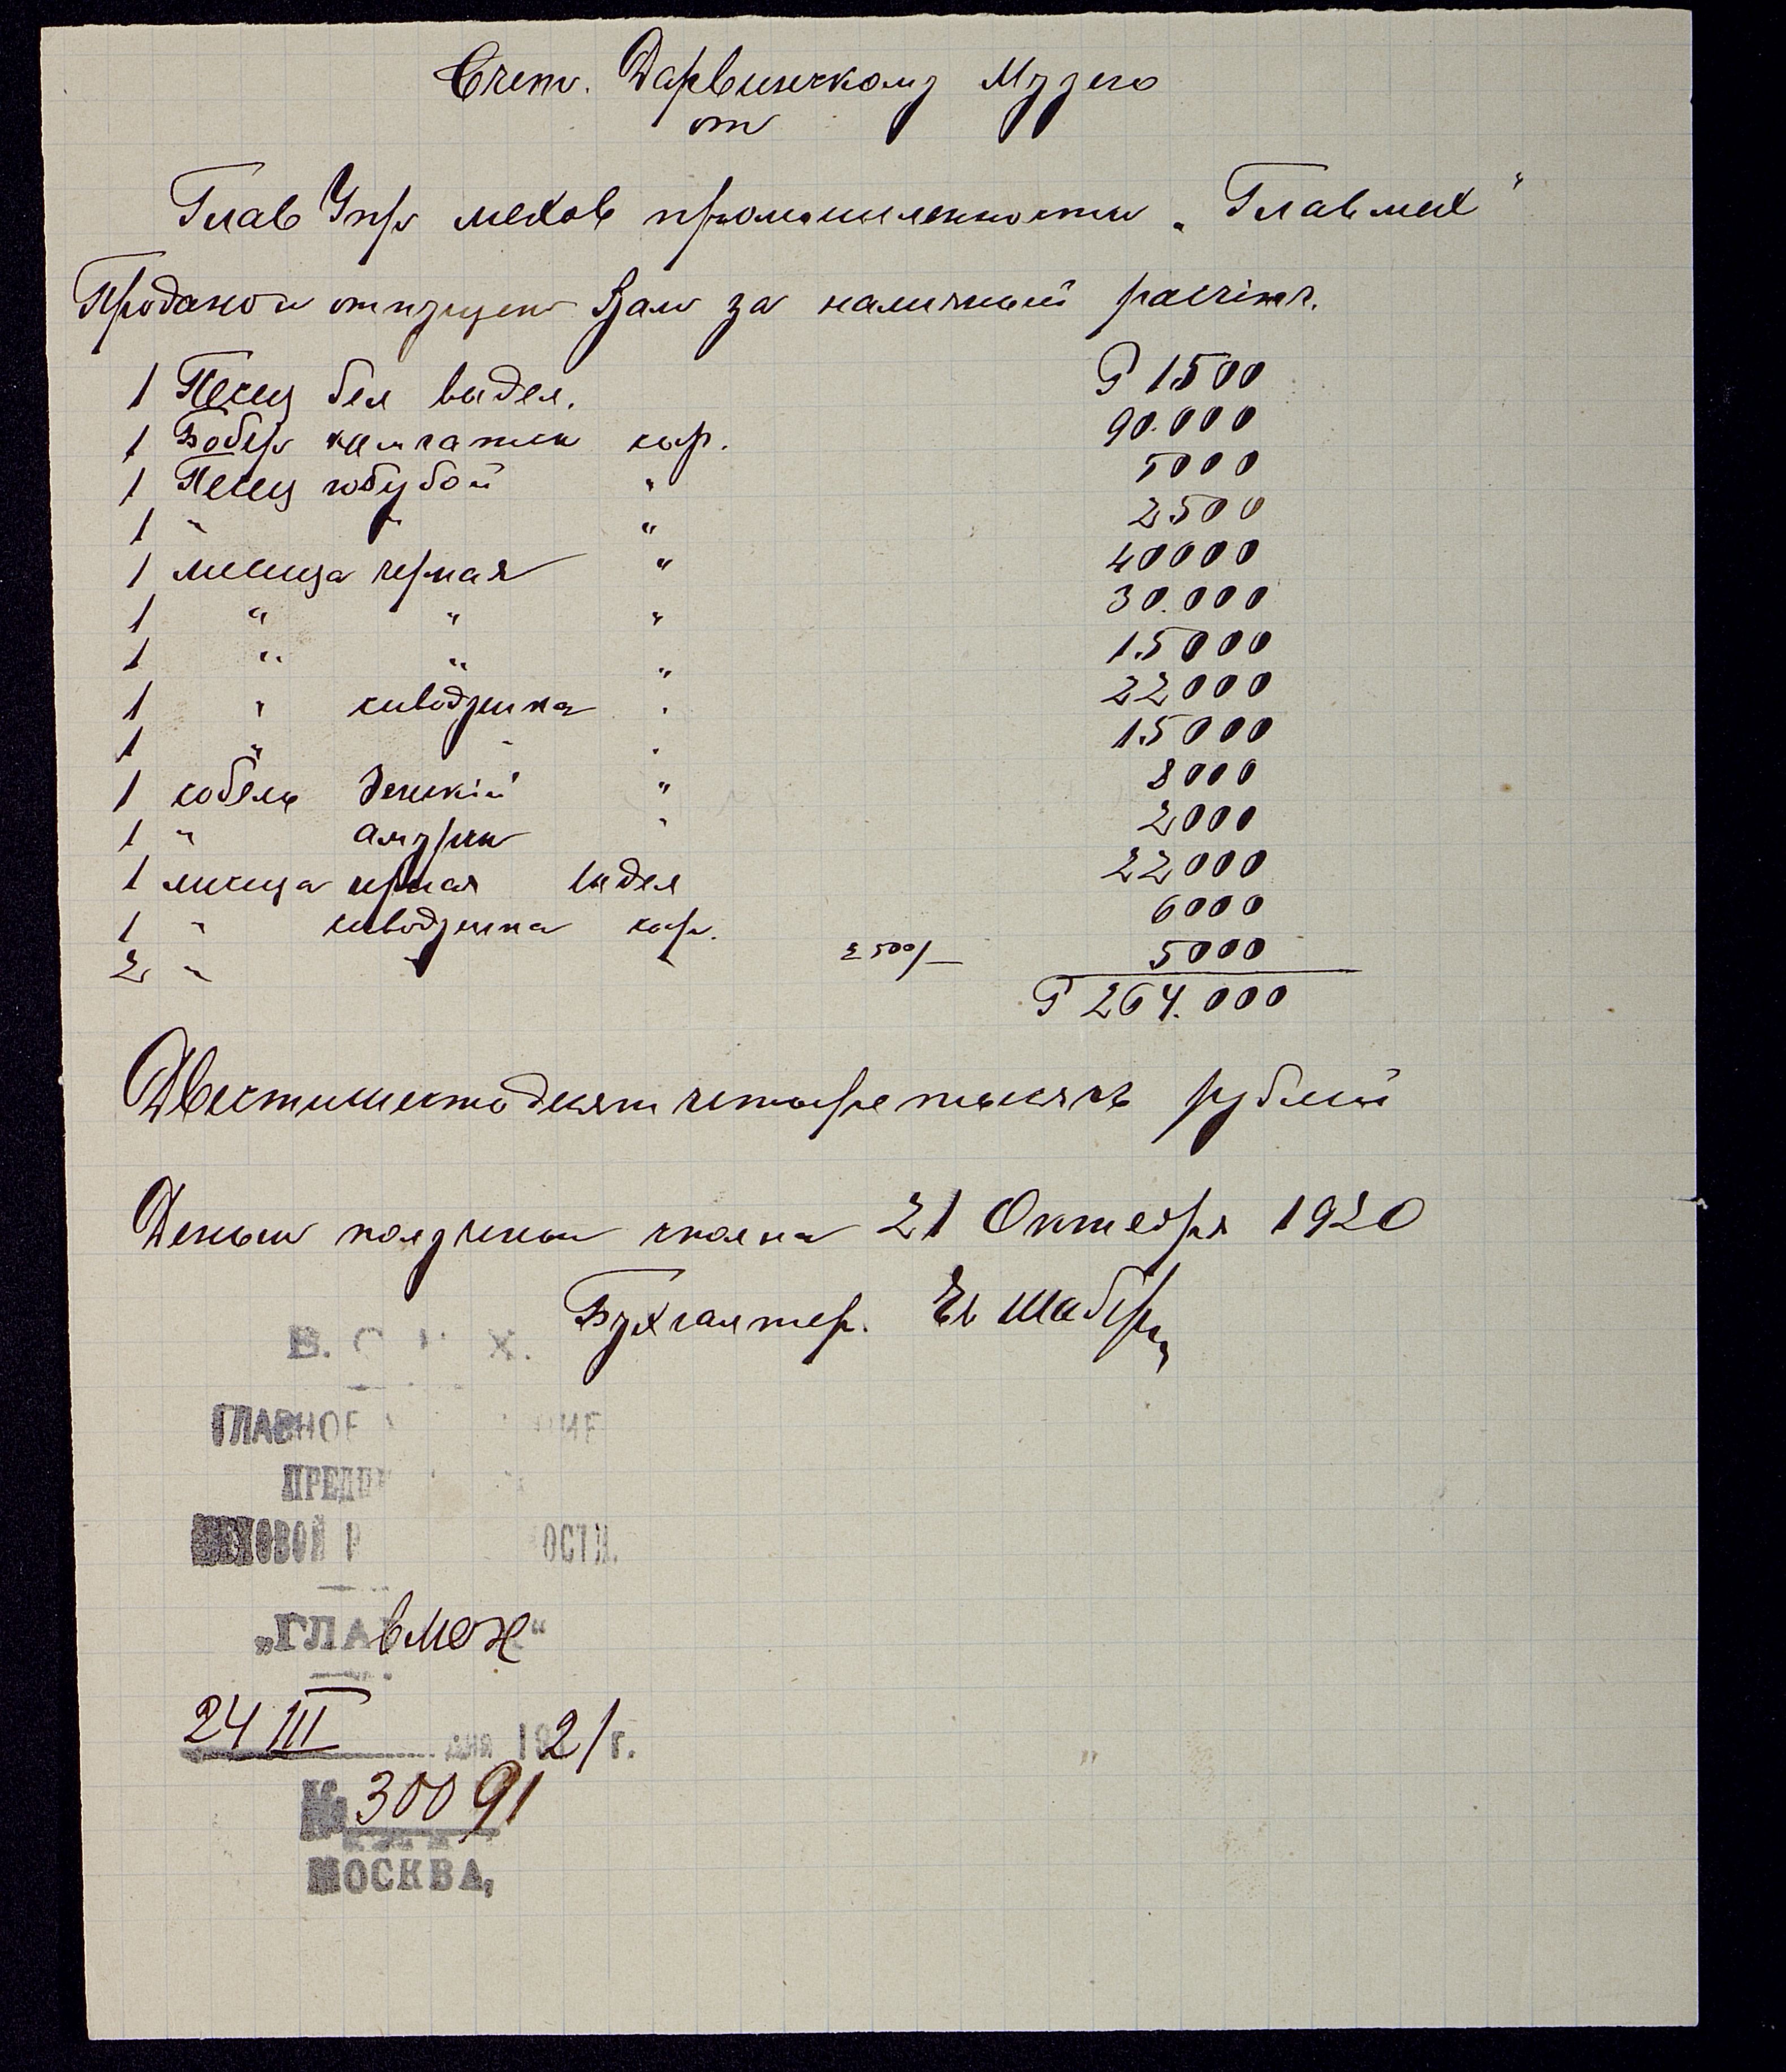 Счет. Дарвинскому Музею
от
Глав Упр мехов промышленности „Главмех“
Продано и отпущено Вам за наличный расчёт.
1 Песец бел выдел. Р 1500
1 Бобер камчатск сыр. 90.000
1 Песец голубой " 5000
1 " " " 2500
1 лисица черная " 40000
1 " " " 30.000
1 " " " 15000
1 " сиводушка " 22000
1 " " " 15000
1 соболь " 8000
1 " амурск " 2000
1 лисица черная выдел 22000
1 " сиводушка сыр. 6000
2 " " 2500/— 5000
Р 264.000
Двестишестьдесят четыре тысячъ рублей
Деньги получены сполна 21 Октября 1920
Бухгалтер.
В. С. Н. Х.
ГЛАВНОЕ
ПРЕДПР
МЕХОВОЙ ОСТИ.
„ГЛАвмех“
24 III дня 1921 г.
№ 30091
МОСКВА,